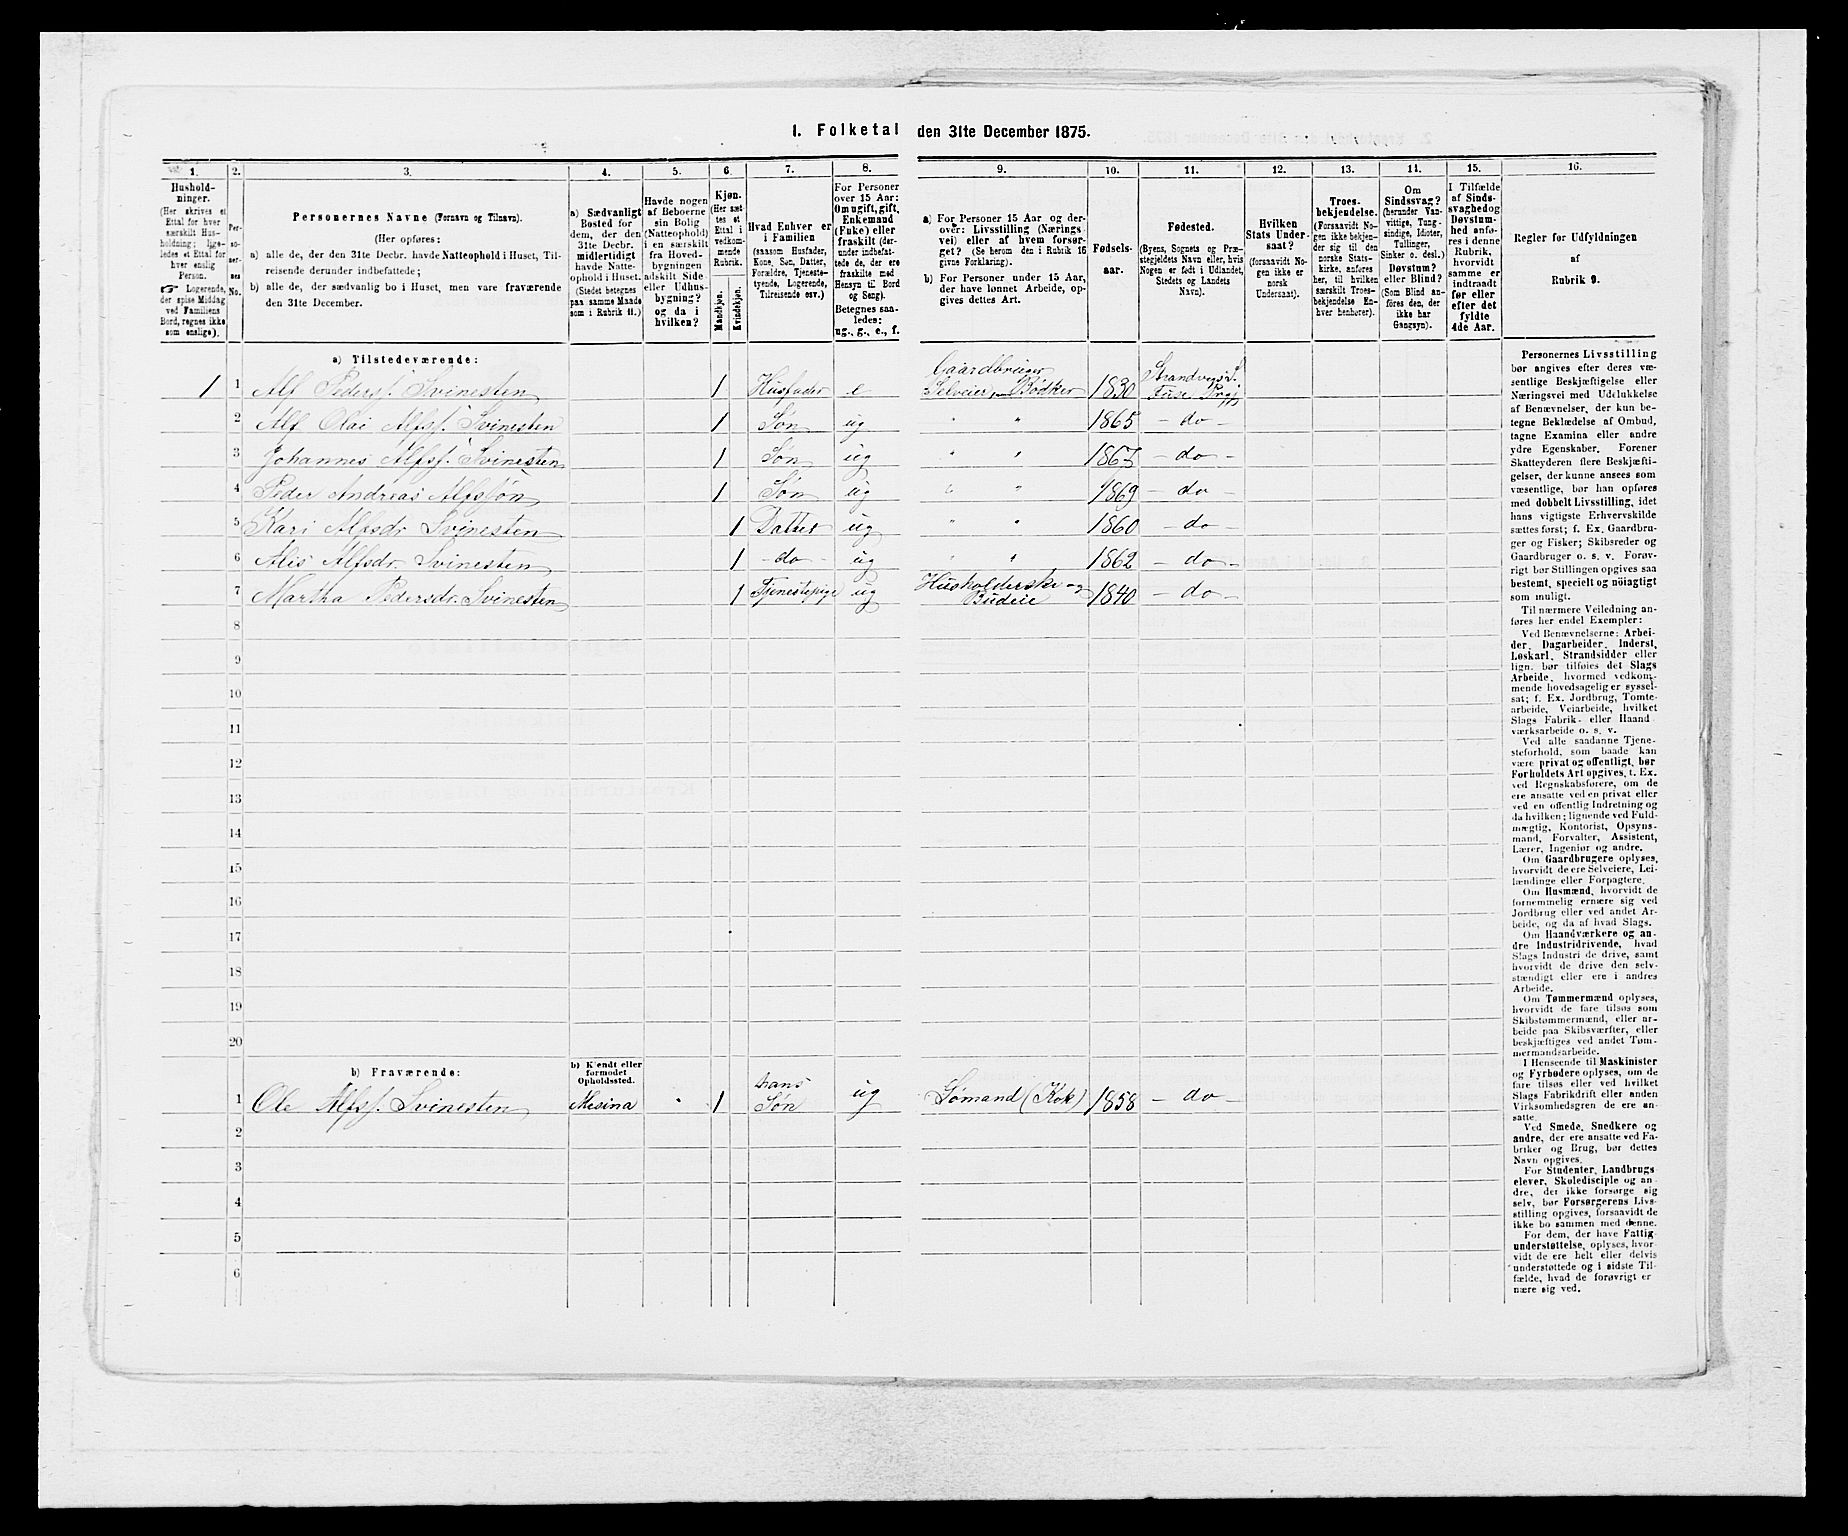 1. Folketal den 31te December 1875.
1.
2.
3.
4.
5.
6.
7.
8.
9.
10.
11.
12.
13.
14.
15.
16.
Hushold-
ninger.
(Her skrives et
Ettal for hver
særskilt Hus-
holdning; lige-
ledes et Ettal for
hver enslig
Person.
☞ Logerende,
der spise Middag
ved Familiens
Bord, regnes ikke
som enslige).
Per-
so-
ner-
nes
No.
Personernes Navne (Fornavn og Tilnavn).
(Her opføres:
a) alle de, der den 31te Decbr. havde Natteophold i Huset, Til-
reisende derunder indbefattede;
b) alle de, der sædvanlig bo i Huset, men vare fraværende
den 31te December.
a) Sædvanligt
Bosted for
dem, der den
31te Decbr.
midlertidigt
havde Natte-
ophold i Huset.
(Stedet betegnes
paa samme Maade
som i Rubrik 11.)
Havde nogen
af Beboerne
sin Bolig
(Natteophold)
i en særskilt
fra Hoved-
bygningen
adskilt Side-
eller Udhus-
bygning?
og da i
hvilken?
Kjøn.
(Her sæt-
tes et
Ettal i
vedkom-
mende
Rubrik.
Mandkjøn.
Kvindekjøn.
Hvad Enhver er
i Familien
(saasom Husfader,
Kone, Søn, Datter,
Forældre, Tjeneste-
tyende, Logerende,
Tilreisende osv.)
For Personer
over 15 Aar:
Om ugift, gift,
Enkemand
(Enke) eller
fraskilt (der-
under indbefat-
tede de, der ere
fraskilte med
Hensyn til Bord
og Seng).
Betegnes saa-
ledes:
ug., g., e., f.
a) For Personer 15 Aar og der-
over: Livsstilling (Nærings-
vei) eller af hvem forsør-
get? (Se herom den i Rubrik 16
givne Forklaring).
b) For Personer under 15 Aar,
der have lønnet Arbeide, op-
gives dettes Art.
Fødsels-
aar.
Fødested.
(Byens, Sognets og Præ-
stegjeldets Navn eller, hvis
Nogen er født i Udlandet,
Stedets og Landets
Navn).
Hvilken
Stats Under-
saat?
(forsaavidt No-
gen ikke er
norsk
Undersaat).
Troes-
bekjendelse.
(Forsaavidt No-
gen ikke bekjen-
der sig til den
norske Stats-
kirke, anføres
her, til hvilken
særskilt Troes-
bekjendelse En-
hver henhører).
Om
Sindssvag?
(herunder Van-
vittige, Tung-
sindige, Idioter,
Tullinger,
Sinker o. desl.)
Døvstum?
eller Blind?
(Som Blind an-
føres den, der
ikke har
Gangsyn).
I Tilfælde
af Sinds-
svaghed og
Døvstum-
hed anfø-
res i denne
Rubrik,
hvorvidt
samme er
indtraadt
før eller
efter det
fyldte
4de Aar.
Regler for Udfyldningen
af
Rubrik 9.
a) Tilstedeværende:
1 1 Alf Peders. Svinesten 1 Husfader e Gaardbruger Selveier, Bødker 1830 Strandvigs S. Fuse Prgj
2 Alf Olai Alfs. Svinesten 1 Søn ug " " 1865 – do –
3 Johannes Alfs. Svinesten 1 Søn ug " " 1867 – do –
4 Peder Andreas Alfssøn 1 Søn ug " " 1869 – do –
5 Kari Alfsdr Svinesten 1 Datter ug " " 1860 – do –
6 Alis Alfsdr. Svinesten 1 – do ug " " 1862 – do –
7 Martha Pedersdr. Svinesten 1 Tjenestepige ug Husholderske og Budeie 1840 – do –
8
9
10
11
12
13
14
15
16
17
18
19
20
b) Fraværende:
b) Kjendt eller
formodet
Opholdssted.
1 Ole Alfs. Svinesten Mesina " 1 hans Søn ug Sømand (Kok) 1858 – do –
2
3
4
5
6
Personernes Livsstilling
bør angives efter deres væ-
sentlige Beskjæftigelse eller
Næringsvei med Udelukkelse
af Benævnelser, der kun be-
tegne Beklædelse af Ombud,
tagne Examina eller andre
ydre Egenskaber. Forener
Skatteyderen flere Beskjæfti-
gelser, der kunne ansees som
væsentlige, bør han opføres
med dobbelt Livsstilling, idet
hans vigtigste Erhvervskilde
sættes først; f. Ex. Gaardbru-
ger og Fisker; Skibsreder og
Gaardbruger o. s. v. Forøv-
rigt bør Stillingen opgives saa
bestemt, specielt og nøiagtigt
som muligt.
Til nærmere Veiledning an-
føres her endel Exempler:
Ved Benævnelserne: Arbei-
der, Dagarbeider, Inderst,
Løskarl, Strandsidder eller
lign. bør tilføies det Slags
Arbeide, hvormed vedkom-
mende hovedsagelig er syssel-
sat; f. Ex. Jordbrug, Tomte-
arbeide, Veiarbeide, hvilket
Slags Fabrik- eller Haand-
værksarbeide o. s. v.
Ved alle saadanne Tjene-
steforhold, som baade kan
være privat og offentligt, bør
Forholdets Art opgives, t. Ex.
ved Regnskabsførere, om de
ere ansatte ved en privat eller
ved en offentlig Indretning og
da hvilken; lignende ved Fuld-
mægtig, Kontorist, Opsyns-
mand, Forvalter, Assistent,
Lærer, Ingeniør og andre.
Om Gaardbrugere oplyses,
hvorvidt de ere Selveiere, Lei-
lændinge eller Forpagtere.
Om Husmænd, hvorvidt de
fornemmelig ernære sig ved
Jordbrug eller ved andet Ar-
beide, og da af hvad Slags.
Om Haandværkere og an-
dre Industridrivende, hvad
Slags Industri de drive, samt
hvorvidt de drive den selv-
stændigt eller ere i andres
Arbeide.
Om Tømmermænd oplyses,
hvorvidt de fare tilsøs som
Skibstømmermænd, eller ar-
beide paa Skibsværfter, eller
beskjæftiges ved andet Tøm-
mermandsarbeide.
I Henseende til Maskinister
og Fyrbødere oplyses, om de
fare tilsøs eller ved hvilket
Slags Fabrikdrift eller anden
Virksomhedsgren de ere an-
satte.
Ved Smede, Snedkere og
andre, der ere ansatte ved Fa-
briker og Brug, bør dettes
Navn opgives.
For Studenter, Landbrugs-
elever, Skoledisciple og an-
dre, der ikke forsørge sig
selv, bør Forsørgerens Livs-
stilling opgives, forsaavidt de
ikke bo sammen med denne.
For dem, der have Fattig-
understøttelse, oplyses, hvor-
vidt de ere helt eller delvis
understøttede og i sidste Til-
fælde, hvad de forøvrigt er
nære sig ved.